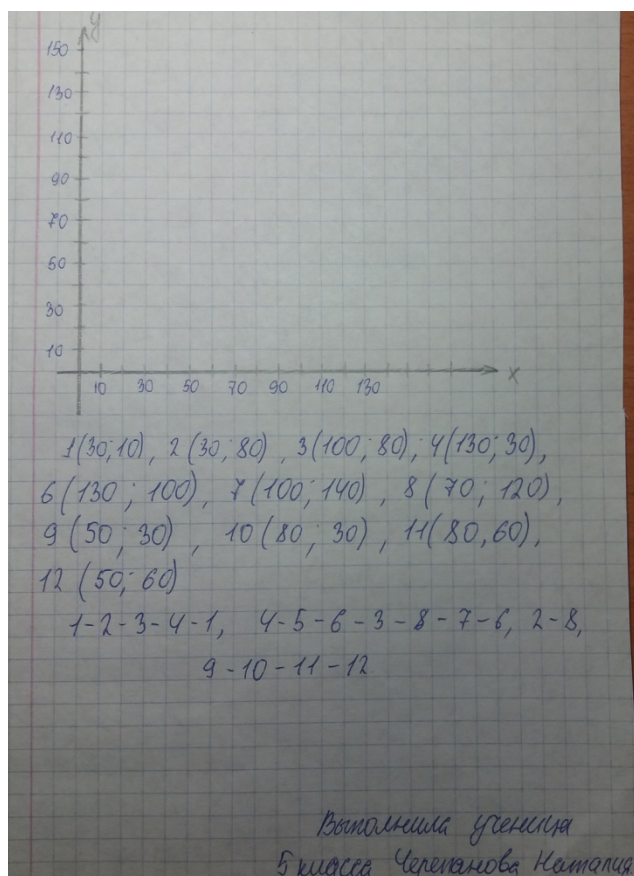 y
150
130
110
90
70
50
30
10
10 30 50 70 90 110 130 x
1(30;10), 2(30;80), 3(100;80); 4(130;30),
6(130; 100), 7(100; 140), 8(70; 120),
9(50; 30), 10(80; 30), 11(80,60),
12(50; 60)
1-2-3-4-1, 4-5-6-3-8-7-6, 2-8,
9-10-11-12
Выполнила ученица
5 класса Черепанова Наталия